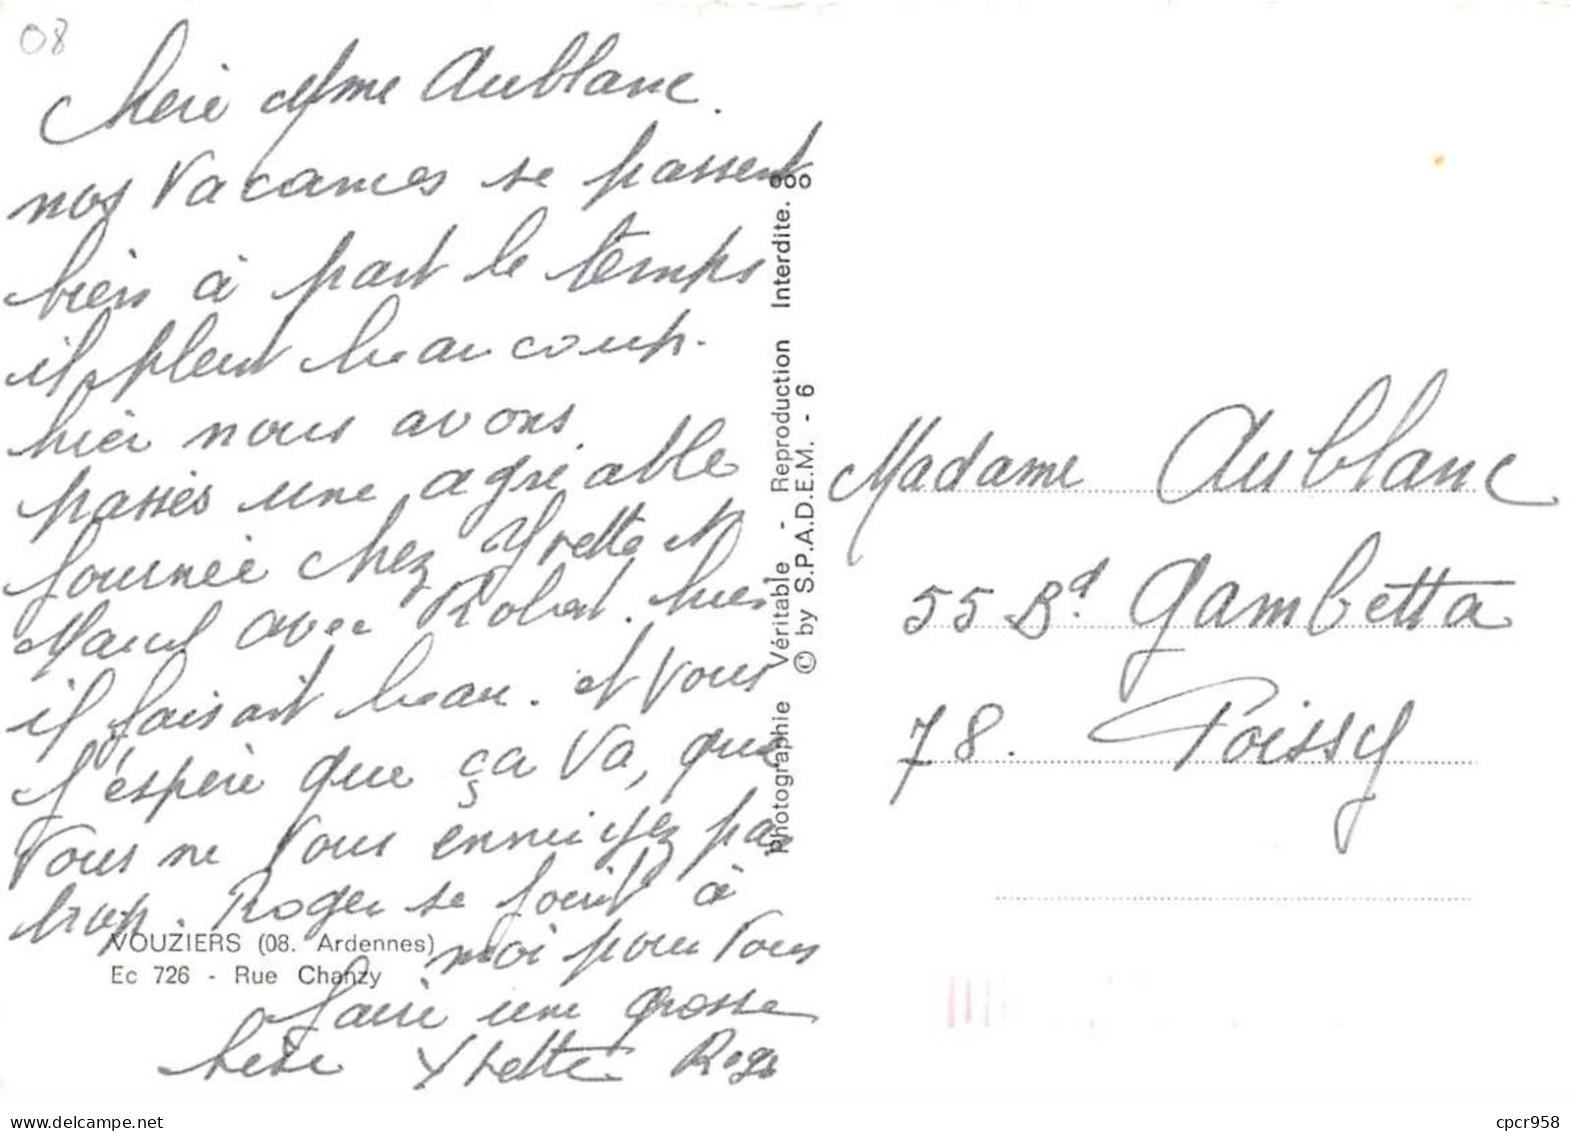 08
Chère Mme Aublanc.
nos vacances se passent
bien à part le temps
il pleut beaucoup.
hier nous avons
passés une agréable
journée chez Yvette et
Marcel avec Robert. hier
il faisait beau. et vous
j'espère que ça va, que
vous ne vous ennuiyez pas
trop. Roger se joint à
moi pour vous
faire une grosse
bise Yvette Roger
VOUZIERS (08. Ardennes)
Ec 726 - Rue Chanzy
Photographie Véritable - Reproduction Interdite.
© by S.P.A.D.E.M. - 6
Madame Aublanc
55 Bd. Gambetta
78. Poissy
delcampe.net
cpcr958